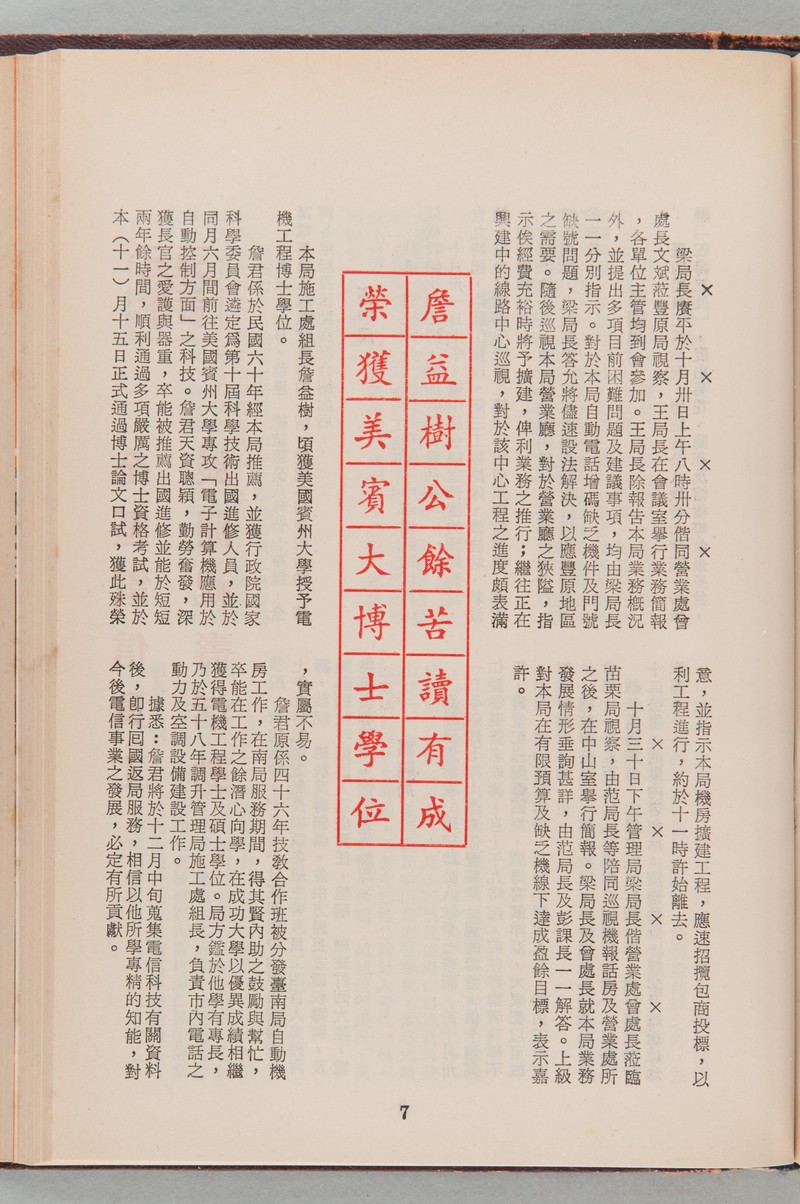 ×　×　×　×
梁局長賡平於十月卅日上午八時卅分偕同營業處曾
處長文斌蒞豐原局視察，王局長在會議室舉行業務簡報
，各單位主管均到會參加。王局長除報告本局業務槪況
外，並提出多項目前困難問題及建議事項，均由梁局長
一一分別指示。對於本局自動電話增碼缺乏機件及門號
缺號問題，梁局長答允將儘速設法解決，以應豐原地區
之需要。隨後巡視本局營業廳，對於營業廳之狹隘，指
示俟經費充裕時將予擴建，俾利業務之推行；繼往正在
興建中的線路中心巡視，對於該中心工程之進度頗表滿
意，並指示本局機房擴建工程，應速招攬包商投標，以
利工程進行，約於十一時許始離去。
×　×　×　×
十月三十日下午管理局梁局長偕營業處曾處長蒞臨
苗栗局視察，由范局長等陪同巡視機報話房及營業處所
之後，在中山室舉行簡報。梁局長及曾處長就本局業務
發展情形垂詢甚詳，由范局長及彭課長一一解答。上級
對本局在有限預算及缺乏機線下達成盈餘目標，表示嘉
許。
詹益樹公餘苦讀有成
榮獲美賓大博士學位
本局施工處組長詹益樹，頃獲美國賓州大學授予電
機工程博士學位。
詹君係於民國六十年經本局推薦，並獲行政院國家
科學委員會遴定爲第十屆科學技術出國進修人員，並於
同月六月間前往美國賓州大學專攻「電子計算機應用於
自動控制方面」之科技。詹君天資聰穎，勤勞奮發，深
獲長官之愛護與器重，卒能被推薦出國進修並能於短短
兩年餘時間，順利通過多項嚴厲之博士資格考試，並於
本（十一）月十五日正式通過博士論文口試，獲此殊榮
，實屬不易。
詹君原係四十六年技敎合作班被分發臺南局自動機
房工作，在南局服務期間，得其賢內助之鼓勵與幫忙，
卒能在工作之餘潛心向學，在成功大學以優異成績相繼
獲得電機工程學士及碩士學位。局方鑑於他學有專長，
乃於五十八年調升管理局施工處組長，負責市內電話之
動力及空調設備建設工作。
據悉：詹君將於十二月中旬蒐集電信科技有關資料
後，卽行囘國返局服務，相信以他所學專精的知能，對
今後電信事業之發展，必定有所貢獻。
7